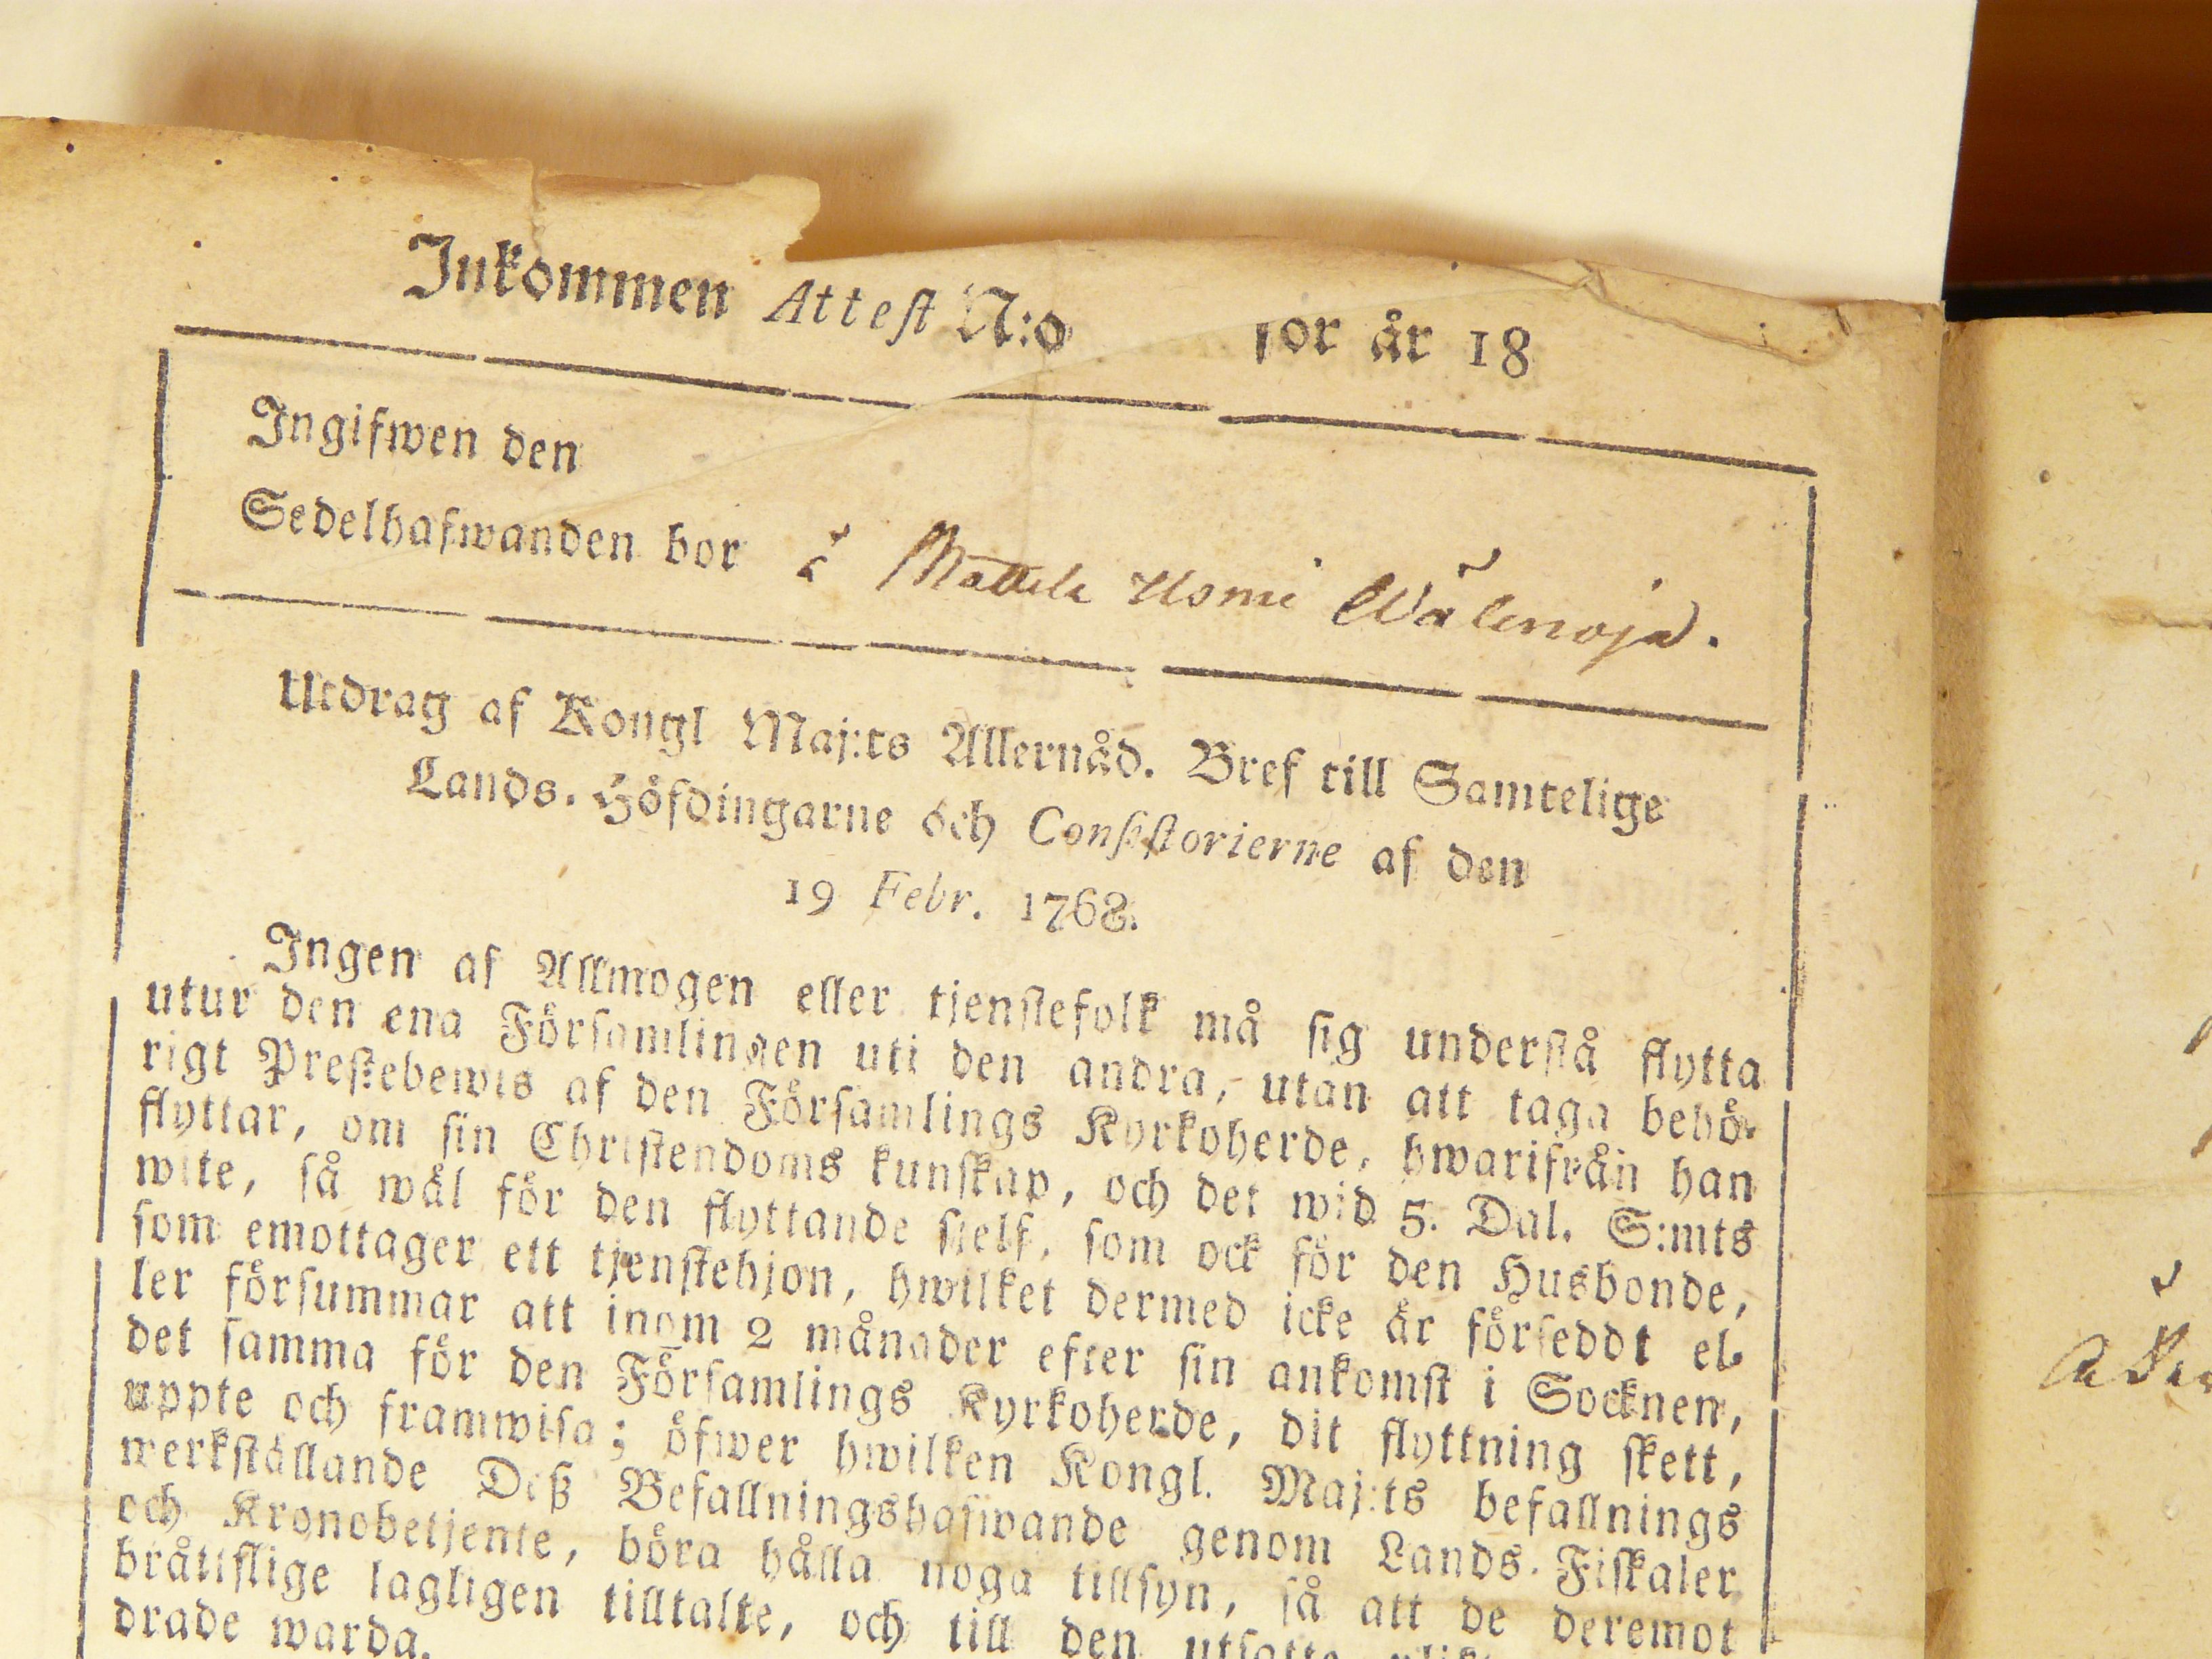 Inkommen Attest N:o för år 18
Ingifwen den
Sedelhafwanden bor i Mattila Usmi Wälenoja.
Utdrag af Kongl Maj:ts Allernåd. Bref till Samtelige
Lands-Höfdingarne och Consistorierne af den
19 Febr. 1768.
Ingen af Allmogen eller tjenstefolk må sig understå flytta
utur den ena Församlingen uti den andra, utan att taga behö-
rigt Prestebewis af den Församlings Kyrkoherde, hwarifrån han
flyttar, om sin Christendoms kunskap, och det wid 5. Dal. S:mts
wite, så wäl för den flyttande sjelf, som ock för den Husbonde,
som emottager ett tjenstehjon, hwilket dermed icke är förseddt el-
ler försummar att inom 2 månader efter sin ankomst i Socknen,
det samma för den Församlings Kyrkoherde, dit flyttning skett,
uppte och framwisa; öfwer hwilken Kongl. Maj:ts befallnings
werkställande Deß Befallningshafwande genom Lands-Fiskaler
och Kronobetjente, böra hålla noga tillsyn, så att de deremot
bråttslige lagligen tilltalte, och till den utsatte
drade warda.